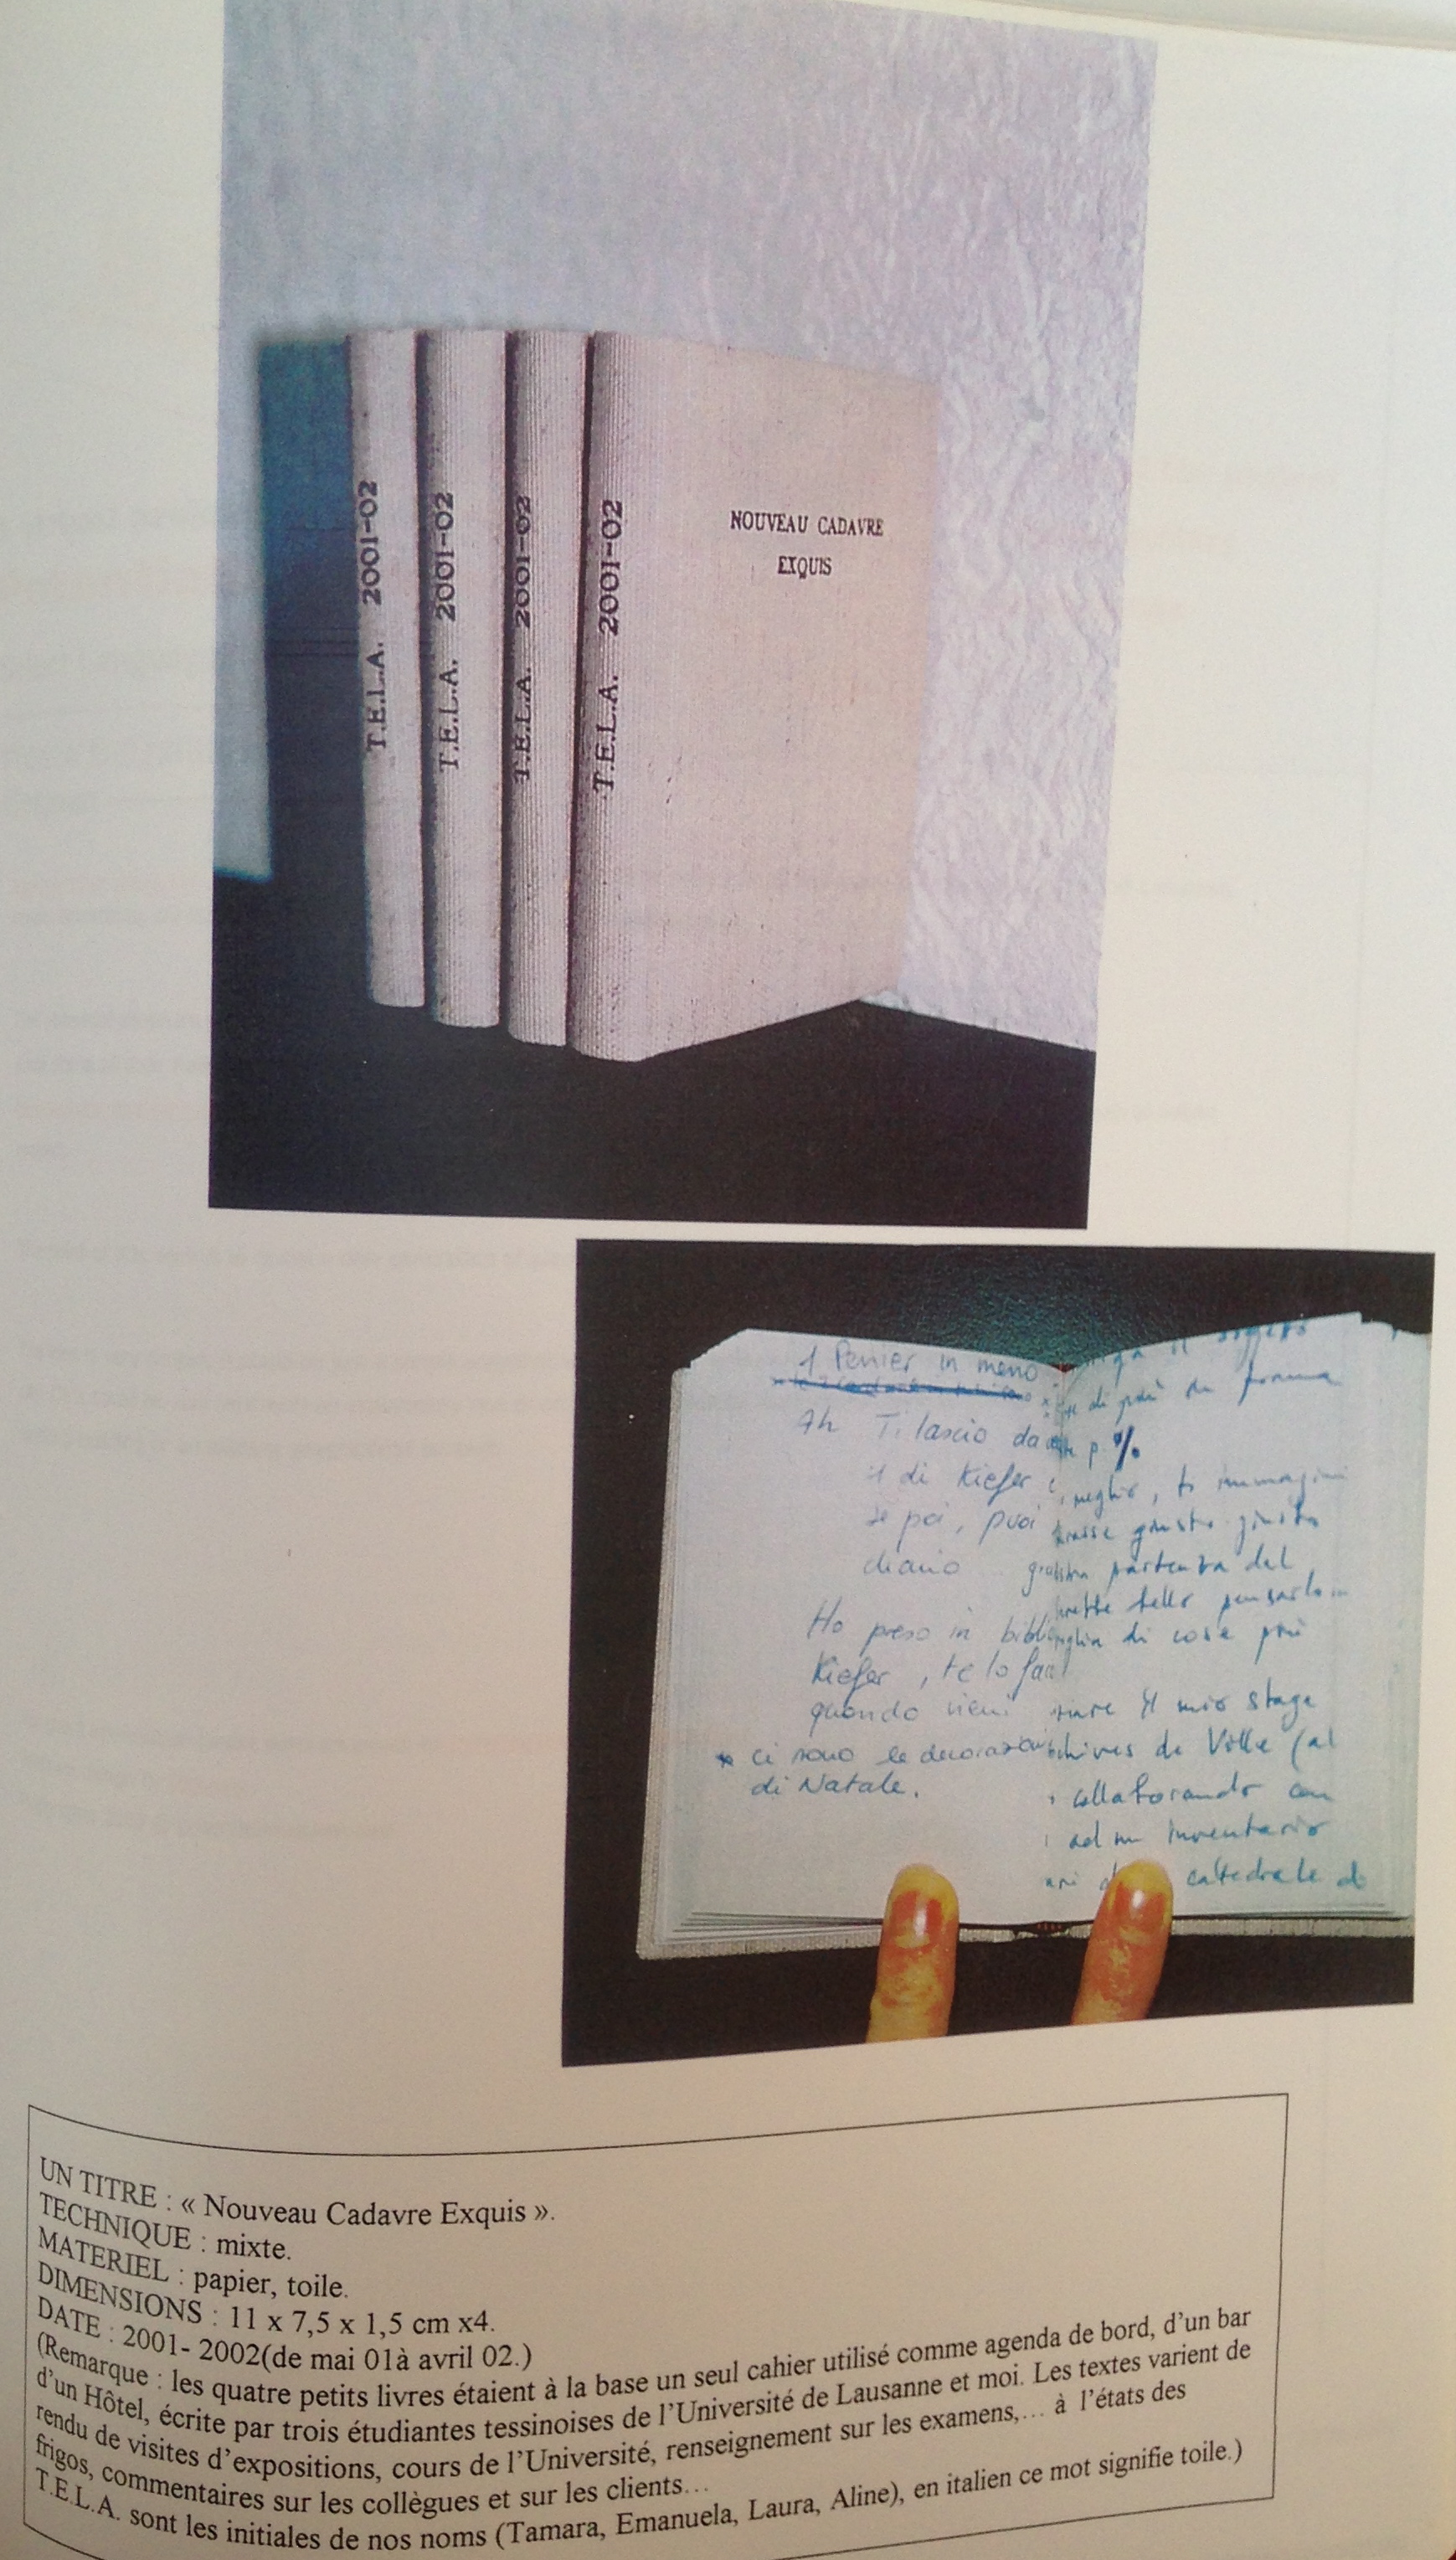 T.E.L.A. 2001-02
T.E.L.A. 2001-02
T.E.L.A. 2001-02
T.E.L.A. 2001-02
NOUVEAU CADAVRE
EXQUIS
1 Penier in meno
7h Ti lascio da
di Kiefer
se poi, puoi
Ho preso in
Kiefer, te lo
quando
* ci sono le decorazioni
di Natale.
di più
p. %
meglio, ti
giusto giusto
partenza del
bello
di cose più
il mio stage
de Ville (al
collaborando con
ad un inventario
cattedrale di
UN TITRE : « Nouveau Cadavre Exquis ».
TECHNIQUE : mixte.
MATERIEL : papier, toile.
DIMENSIONS : 11 x 7,5 x 1,5 cm x4.
DATE : 2001- 2002(de mai 01à avril 02.)
(Remarque : les quatre petits livres étaient à la base un seul cahier utilisé comme agenda de bord, d’un bar
d’un Hôtel, écrite par trois étudiantes tessinoises de l’Université de Lausanne et moi. Les textes varient de
rendu de visites d’expositions, cours de l’Université, renseignement sur les examens,… à l’états des
frigos, commentaires sur les collègues et sur les clients…
T.E.L.A. sont les initiales de nos noms (Tamara, Emanuela, Laura, Aline), en italien ce mot signifie toile.)